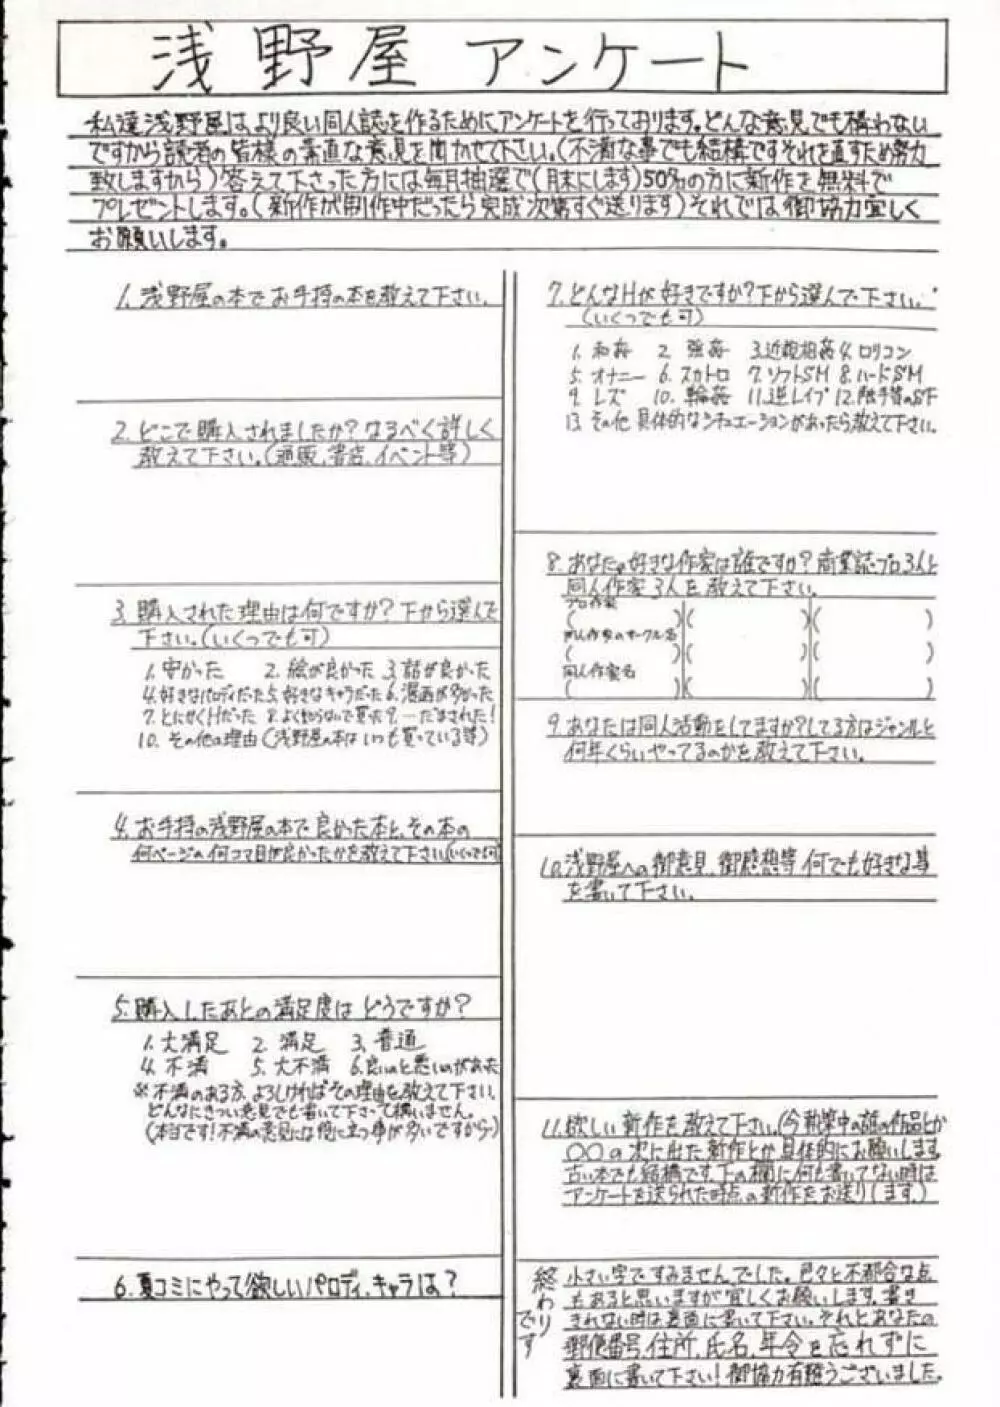 浅野屋 アンケート
私達浅野屋はより良い同人誌を作るためにアンケートを行っております。どんな意見でも構わない
ですから読者の皆様の素直な意見を聞かせて下さい。(不満な事でも結構ですそれを直すため努力
致しますから)答えて下さった方には毎月抽選で(月末にします)50名の方に新作を無料で
プレゼントします。(新作が制作中だったら完成次第すぐ送ります)それでは御協力宜しく
お願いします。
1. 浅野屋の本でお手持の本を教えて下さい。
2. どこで購入されましたか?なるべく詳しく
教えて下さい。(通販、書店、イベント等)
3. 購入された理由は何ですか?下から選んで
下さい。(いくつでも可)
1. 安かった 2. 絵が良かった 3. 話が良かった
4. 好きなパロディだった 5. 好きなキャラだった 6. 漫画が多かった
7. とにかくHだった 8. よく知らないで買った 9. 一だまされた!
10. その他の理由(浅野屋の本はいつも買っている等)
4. お手持の浅野屋の本で良かった本と、その本の
何ページの何コマ目が良かったかを教えて下さい(いくつでも可)
5. 購入したあとの満足度はどうですか?
1. 大満足 2. 満足 3. 普通
4. 不満 5. 大不満 6. 良いのと悪いのがあった
※不満のある方、よろしければその理由を教えて下さい、
どんなにきつい意見でも書いて下さって構いません。
(本当です!不満の意見には役に立つ事が多いですから)
6. 夏コミにやって欲しいパロディ、キャラは?
7. どんなHが好きですか?下から選んで下さい。
(いくつでも可)
1. 和姦 2. 強姦 3. 近親相姦 4. ロリコン
5. オナニー 6. スカトロ 7. ソフトSM 8. ハードSM
9. レズ 10. 輪姦 11. 逆レイプ 12. 触手等のSF
13. その他 具体的なシチュエーションがあったら教えて下さい。
8. あなたの好きな作家は誰ですか?商業誌プロ3人と
同人作家3人を教えて下さい。
プロ作家
( )( )( )
同人作家のサークル名
( )( )( )
同人作家名
( )( )( )
9. あなたは同人活動をしてますか?してる方はジャンルと
何年くらいやってるのかを教えて下さい。
10. 浅野屋への御意見、御感想等何でも好きな事
を書いて下さい。
11. 欲しい新作を教えて下さい。(今執筆中の誰の作品とか
○○の次に出た新作とか具体的にお願いします
古い本でも結構です。下の欄に何も書いてない時は
アンケートを送られた時点の新作をお送りします。)
終わりです
小さい字ですみませんでした。色々と不都合な点
もあると思いますが宜しくお願いします。書き
きれない時は裏面に書いて下さい。それとあなたの
郵便番号、住所、氏名、年令を忘れずに
裏面に書いて下さい!御協力有難うございました。